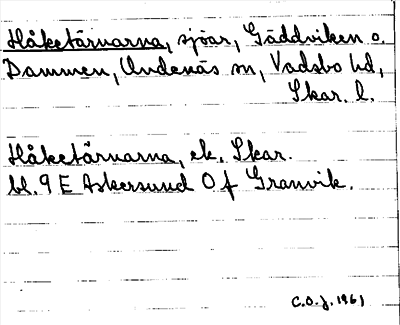 Håketärnarna, sjöar, Gäddviken o.
Dammen, Undenäs sn, Vadsbo hd,
Skar. l.
Håketärnarna, ek. Skar.
bl. 9 E Askersund O f Granvik.
C.O.J. 1961